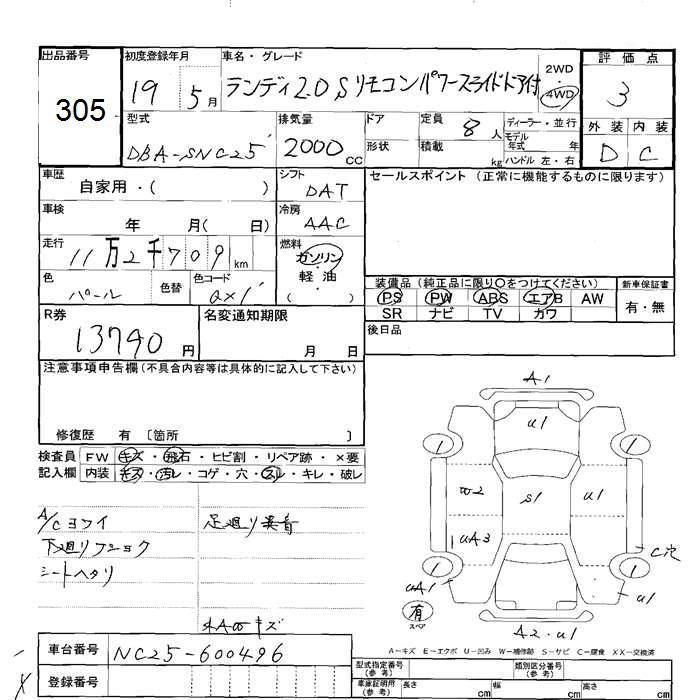 出品番号
305
初度登録年月
19 5月
車名・グレード
ランディ2.0Sリモコンパワースライドドア付
2WD
・
4WD
評価点
3
外装 内装
D C
型式
DBA-SNC25
排気量
2000cc
ドア
形状
定員 8人
積載 kg
ディーラー・並行
モデル
年式 年
ハンドル 左・右
車歴
自家用・( )
シフト
DAT
セールスポイント (正常に機能するものに限ります)
車検
年 月( 日)
冷房
AAC
走行
11万2千709km
燃料
ガソリン
・
軽・油
( )
色
パール
色替
色コード
QX1
装備品 (純正品に限り○をつけてください)
PS PW ABS エアB AW
SR ナビ TV カワ
新車保証書
有・無
R券
13790円
名変通知期限
月 日
後日品
注意事項申告欄(不具合内容等は具体的に記入して下さい)
修復歴 有 〔箇所 〕
検査員
記入欄
FW キズ・飛石・ヒビ割・リペア跡・×要
内装 キズ・汚レ・コゲ・穴・スレ・キレ・破レ
A/Cヨワイ
下廻りフショク
シートヘタリ
足廻り異音
A1
u1
1 1
w2 S1 u1
uA3
C穴
1 1
uA1 u1
有
スペア
A2・u1
A−キズ E−エクボ U−凹み W−補修跡 S−サビ C−腐食 XX−交換済
車台番号
NC25-600496
登録番号
型式指定番号
(参考)
類別区分番号
(参考)
車庫証明用
(参考)
長さ cm
幅 cm
高さ cm